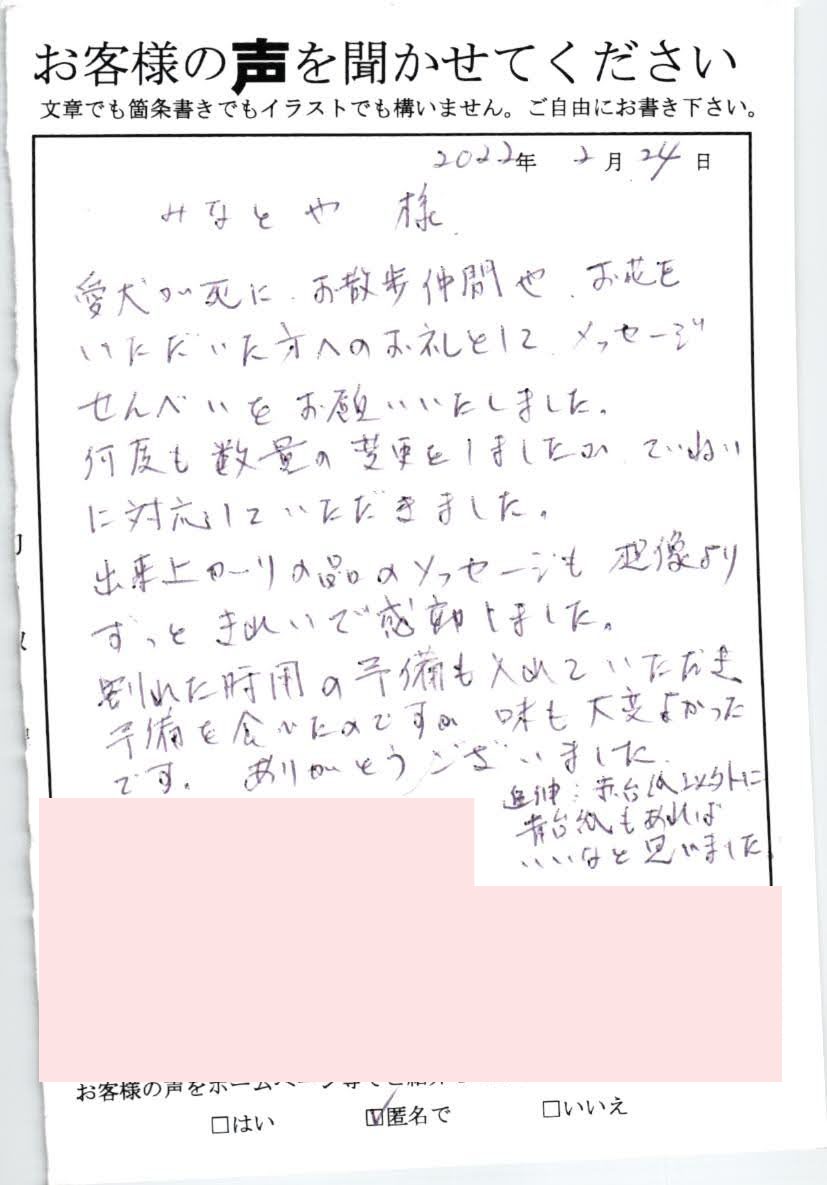 お客様の声を聞かせてください
文章でも箇条書きでもイラストでも構いません。ご自由にお書き下さい。
2022年 2月 24日
みなとや 様
愛犬が死に、お散歩仲間や、お花を
いただいた方へのお礼として、メッセージ
せんべいをお願いいたしました。
何度も数量の変更をしましたが、ていねい
に対応していただきました。
出来上がりの品のメッセージも想像より
ずっときれいで感動しました。
割れた時用の予備も入れていただき
予備を食べたのですが味も大変よかった
です。ありがとうございました。
追伸:赤台紙以外に
青台紙もあれば
いいなと思いました。
お客様の声をホームページ等でご紹介
□はい ☑匿名で □いいえ